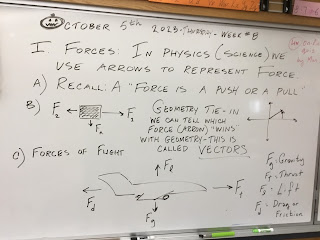 OCTOBER 5th 2023-THURSDAY-WEEK #8
I. FORCES: IN PHYSICS (SCIENCE) WE
USE ARROWS TO REPRESENT FORCE.
A) RECALL: A "FORCE IS A PUSH OR A PULL"
B) F2 F1
GEOMETRY TIE-IN
WE CAN TELL WHICH
FORCE (ARROW) "WINS"
WITH GEOMETRY-THIS IS
CALLED VECTORS
C) FORCES OF FLIGHT
Fl
Fd Ft
Fg
Fg: Gravity
Ft: Thrust
Fl: Lift
Fd: Drag or
Friction